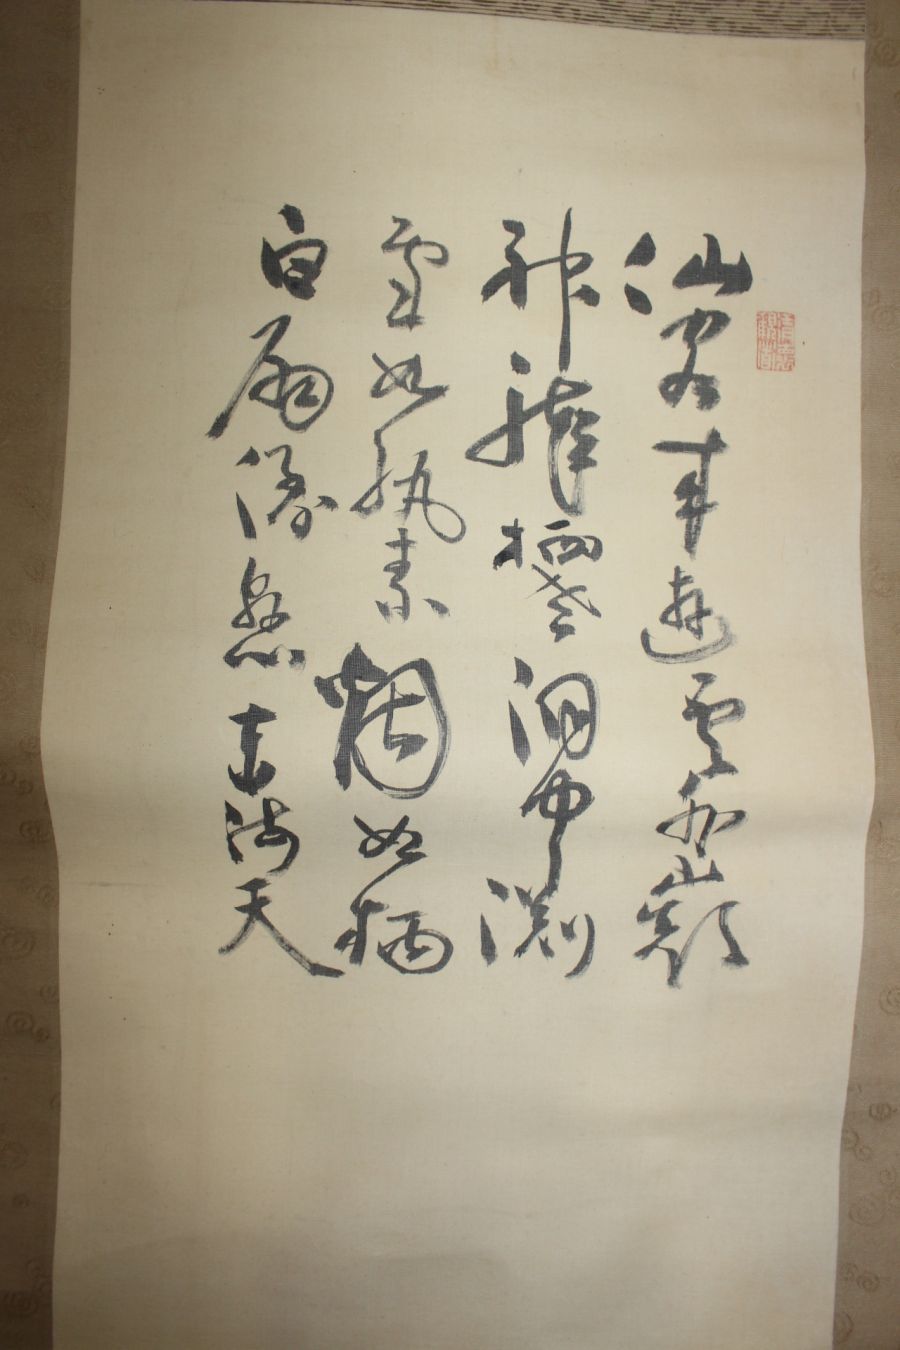 仙客来遊雲外巓
神龍栖老洞中淵
雪如紈素烟如柄
白扇倒懸東海天